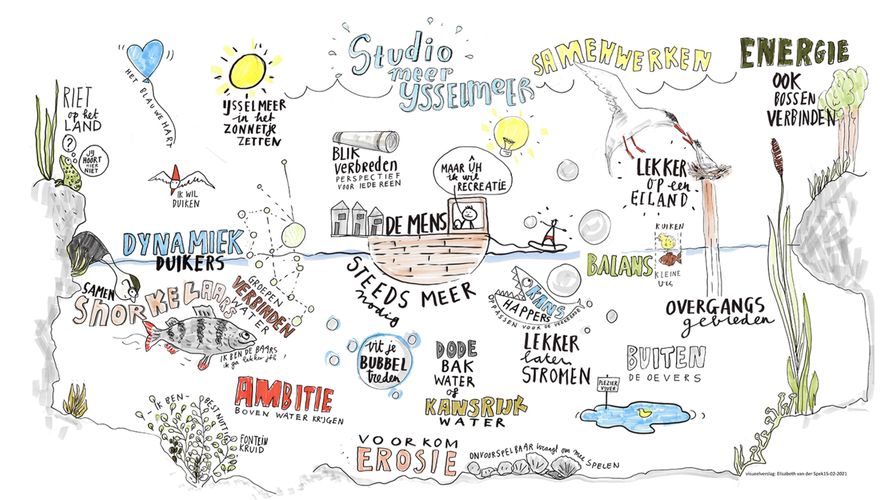 Studio
meer
IJSSELMEER
SAMENWERKEN
ENERGIE
OOK
BOSSEN
VERBINDEN
HET BLAUWE HART
IJSSELMEER
in het
ZONNETJE
ZETTEN
RIET
op het
LAND
?
JIJ
HOORT
HIER
NIET
IK WIL
DUIKEN
BLIK
verbreden
PERSPECTIEF
VOOR IEDEREEN
MAAR ÛH
ik wil
RECREATIE
DE MENS
LEKKER
OP een
EILAND
DYNAMIEK
DUIKERS
SAMEN
SNORKELAARS
GROEPEN
VERBINDEN
WATER
STEEDS MEER
nodig
KANS
HAPPERS
OPPASSEN VOOR DE
BALANS
KUIKEN
KLEINE
VIS
OVERGANGS
gebieden
IK BEN DE BAARS
ik ga lekker
uit je
BUBBEL
treden
DODE
BAK
WATER
of
KANSRIJK
WATER
LEKKER
laten
STROMEN
BUITEN
DE OEVERS
PLEZIER
VIJVER
AMBITIE
BOVEN WATER KRIJGEN
IK BEN
BEST NUTTIG
FONTEIN
KRUID
VOORKOM
EROSIE
ONVOORSPELBAAR vraagt om mee SPELEN
visueelverslag: Elisabeth van der Spek15-02-2021